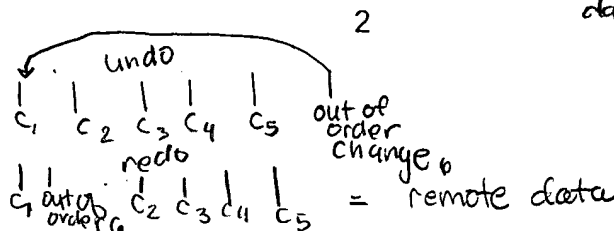 2
da
undo
C1 C2 C3 C4 C5 out of order change 6
redo
C1 out of order 6 C2 C3 C4 C5 = remote data